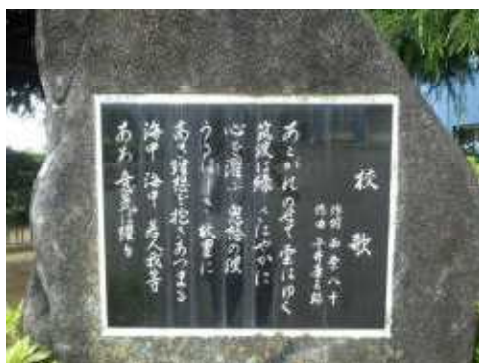 校歌
作詞 西条八十
作曲 平井康三郎
あこがれのせて雲はゆく
筑波は緑さはやかに
心を濯ふ鬼怒の波
うるはしき故里に
高き理想を抱きあつまる
海中海中若人我等
ああ意気は踊る